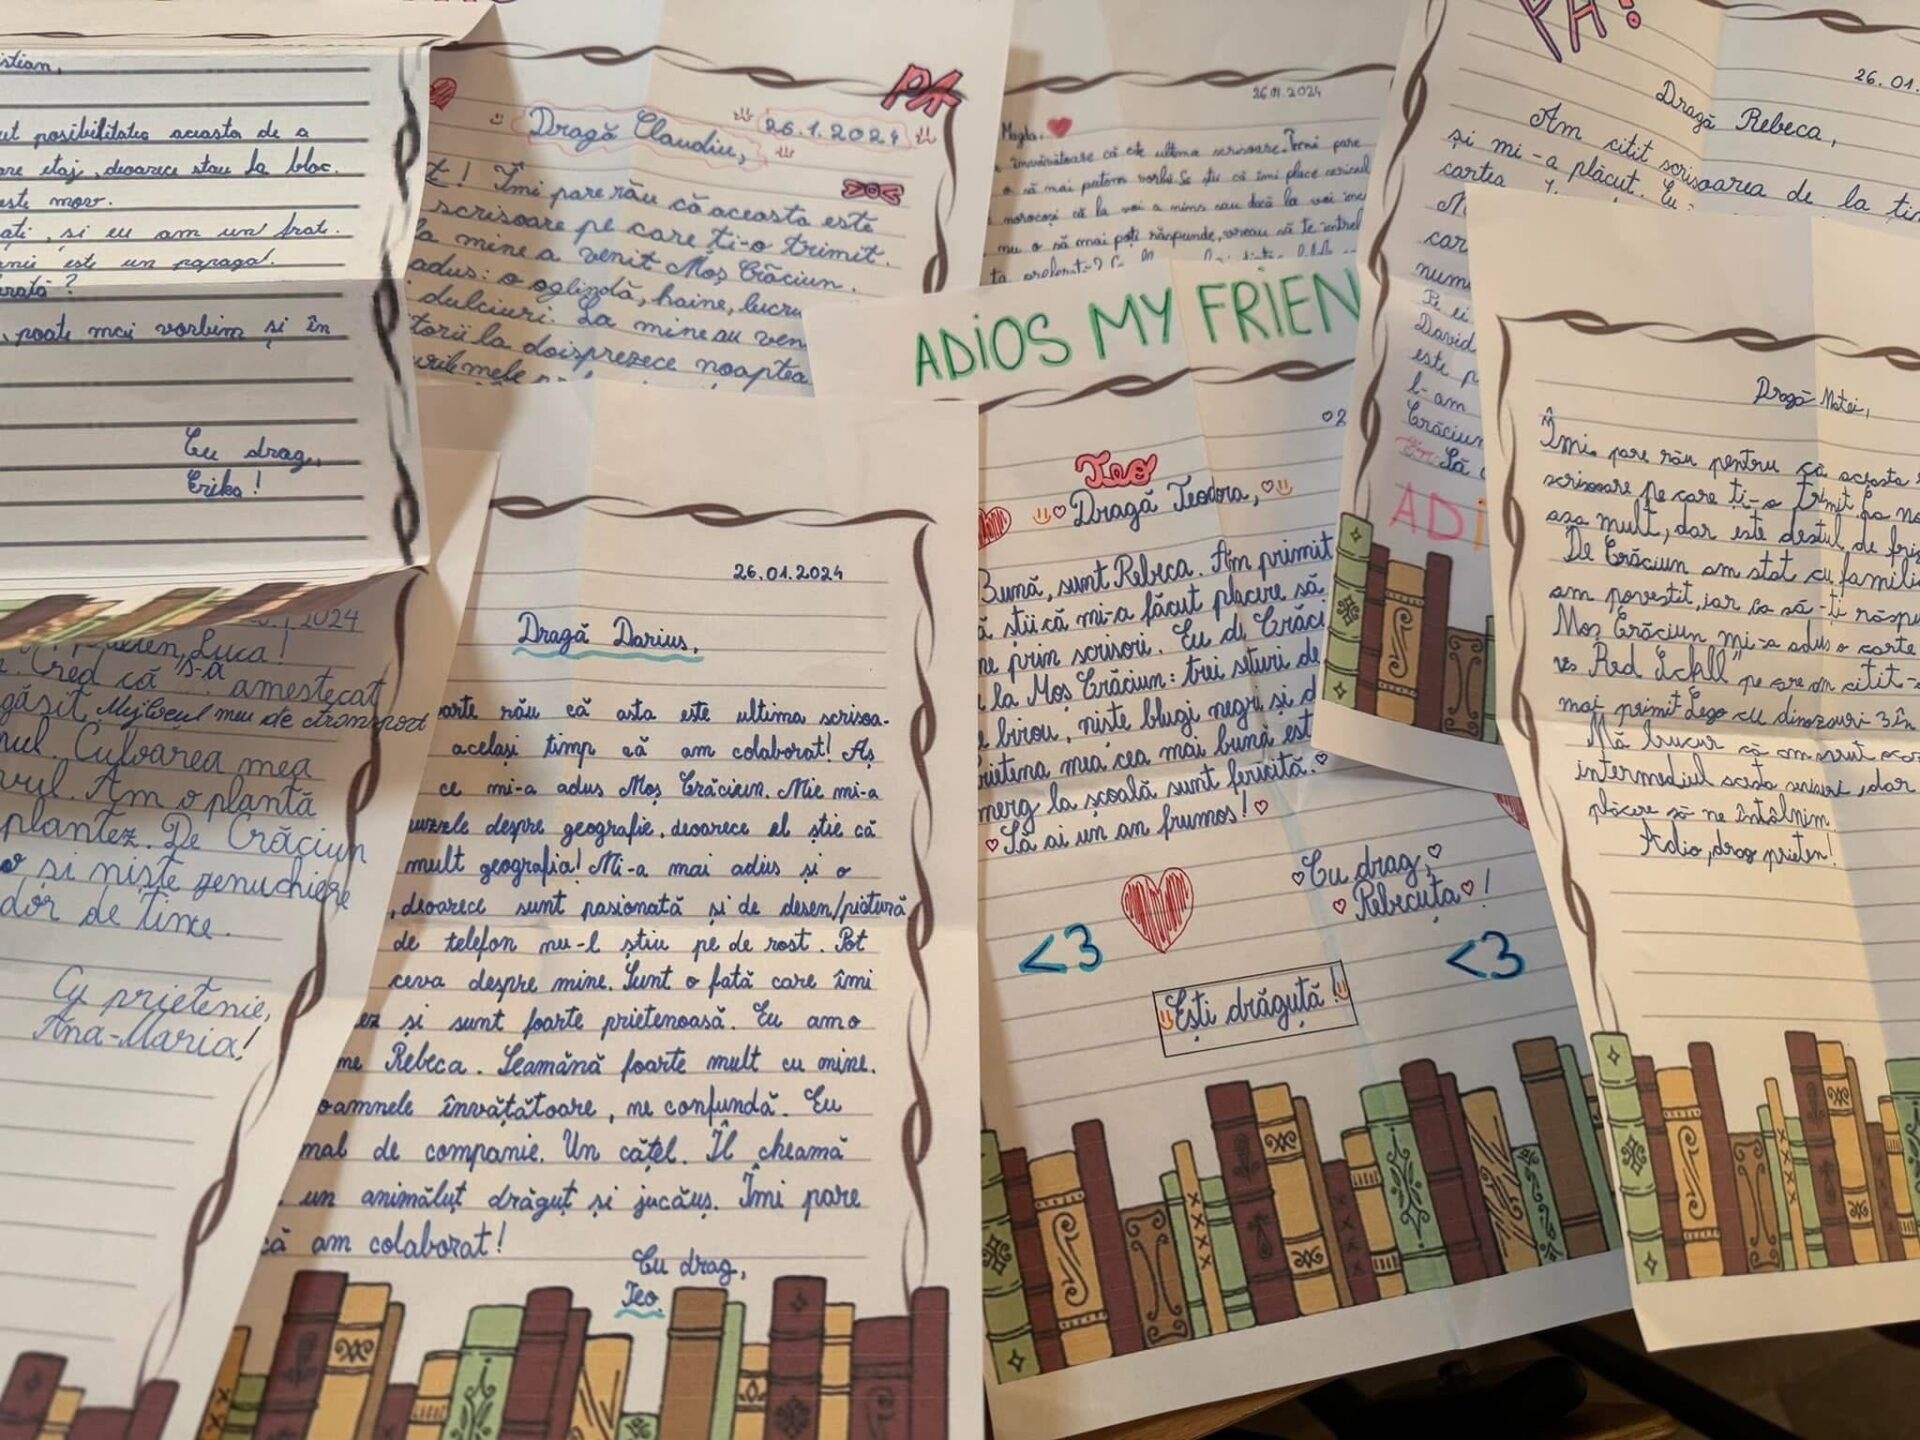 ut posibilitatea aceasta de a
are etaj, deoarece stau la bloc.
este mov.
ați, și eu am un frate.
este un papagal.
poate mai vorbim și în
Cu drag,
Erika!
PA
Dragă Claudiu,
26.1.2024
Îmi pare rău că aceasta este
scrisoare pe care ți-o trimit.
la mine a venit Moș Crăciun.
adus: o oglindă, haine, lucru
dulciuri. La mine au ven
torii la doisprezece noaptea
26.01.2024
Magda,
învățătoare că este ultima scrisoare. Îmi pare
o să mai putem vorbi. Să știi că îmi place
norocoși că la voi a nins sau dacă la voi
nu o să mai poți răspunde, vreau să te întreb
PA!
26.01.
Dragă Rebeca,
Am citit scrisoarea de la tin
și mi-a plăcut. Eu
cartea
car
num
Pe ei
David
este p
l-am
Crăciun
Să
ADI
ADIOS MY FRIEN
02
Teo
Dragă Teodora,
Bună, sunt Rebeca. Am primit
să știi că mi-a făcut plăcere să
ne prin scrisori. Eu de Crăci
la Moș Crăciun: trei seturi de
birou, niște blugi negri și d
prietena mea cea mai bună est
merg la școală sunt fericită.
Să ai un an frumos!
Cu drag,
Rebecuța!
<3
<3
Ești drăguță!
Dragă Matei,
Îmi pare rău pentru că aceasta
scrisoare pe care ți-o trimit. La no
așa mult, dar este destul de frig
De Crăciun am stat cu famili
am povestit, iar ca să-ți răspu
Moș Crăciun mi-a adus o carte
pe care am citit-
mai primit Lego cu dinozauri 3 în
Mă bucur că am avut
intermediul
plăcere să ne întâlnim.
Adio, drag prieten!
2024
Luca!
Cred că s-a amestecat
găsit. Mijlocul meu de transport
Culoarea mea
Am o plantă
plantez. De Crăciun
și niște genunchiere
dor de tine.
Cu prietenie,
Ana-Maria!
26.01.2024
Dragă Darius,
oarte rău că asta este ultima scrisoa-
același timp că am colaborat! Aș
ce mi-a adus Moș Crăciun. Mie mi-a
puzzele despre geografie, deoarece el știe că
mult geografia! Mi-a mai adus și o
, deoarece sunt pasionată și de desen/pictură
de telefon nu-l știu pe de rost. Pot
ceva despre mine. Sunt o fată care îmi
ez și sunt foarte prietenoasă. Eu am o
me Rebeca. Seamănă foarte mult cu mine.
oamnele învățătoare, ne confundă. Eu
mal de companie. Un cățel. Îl cheamă
un animăluț drăguț și jucăuș. Îmi pare
că am colaborat!
Cu drag,
Teo